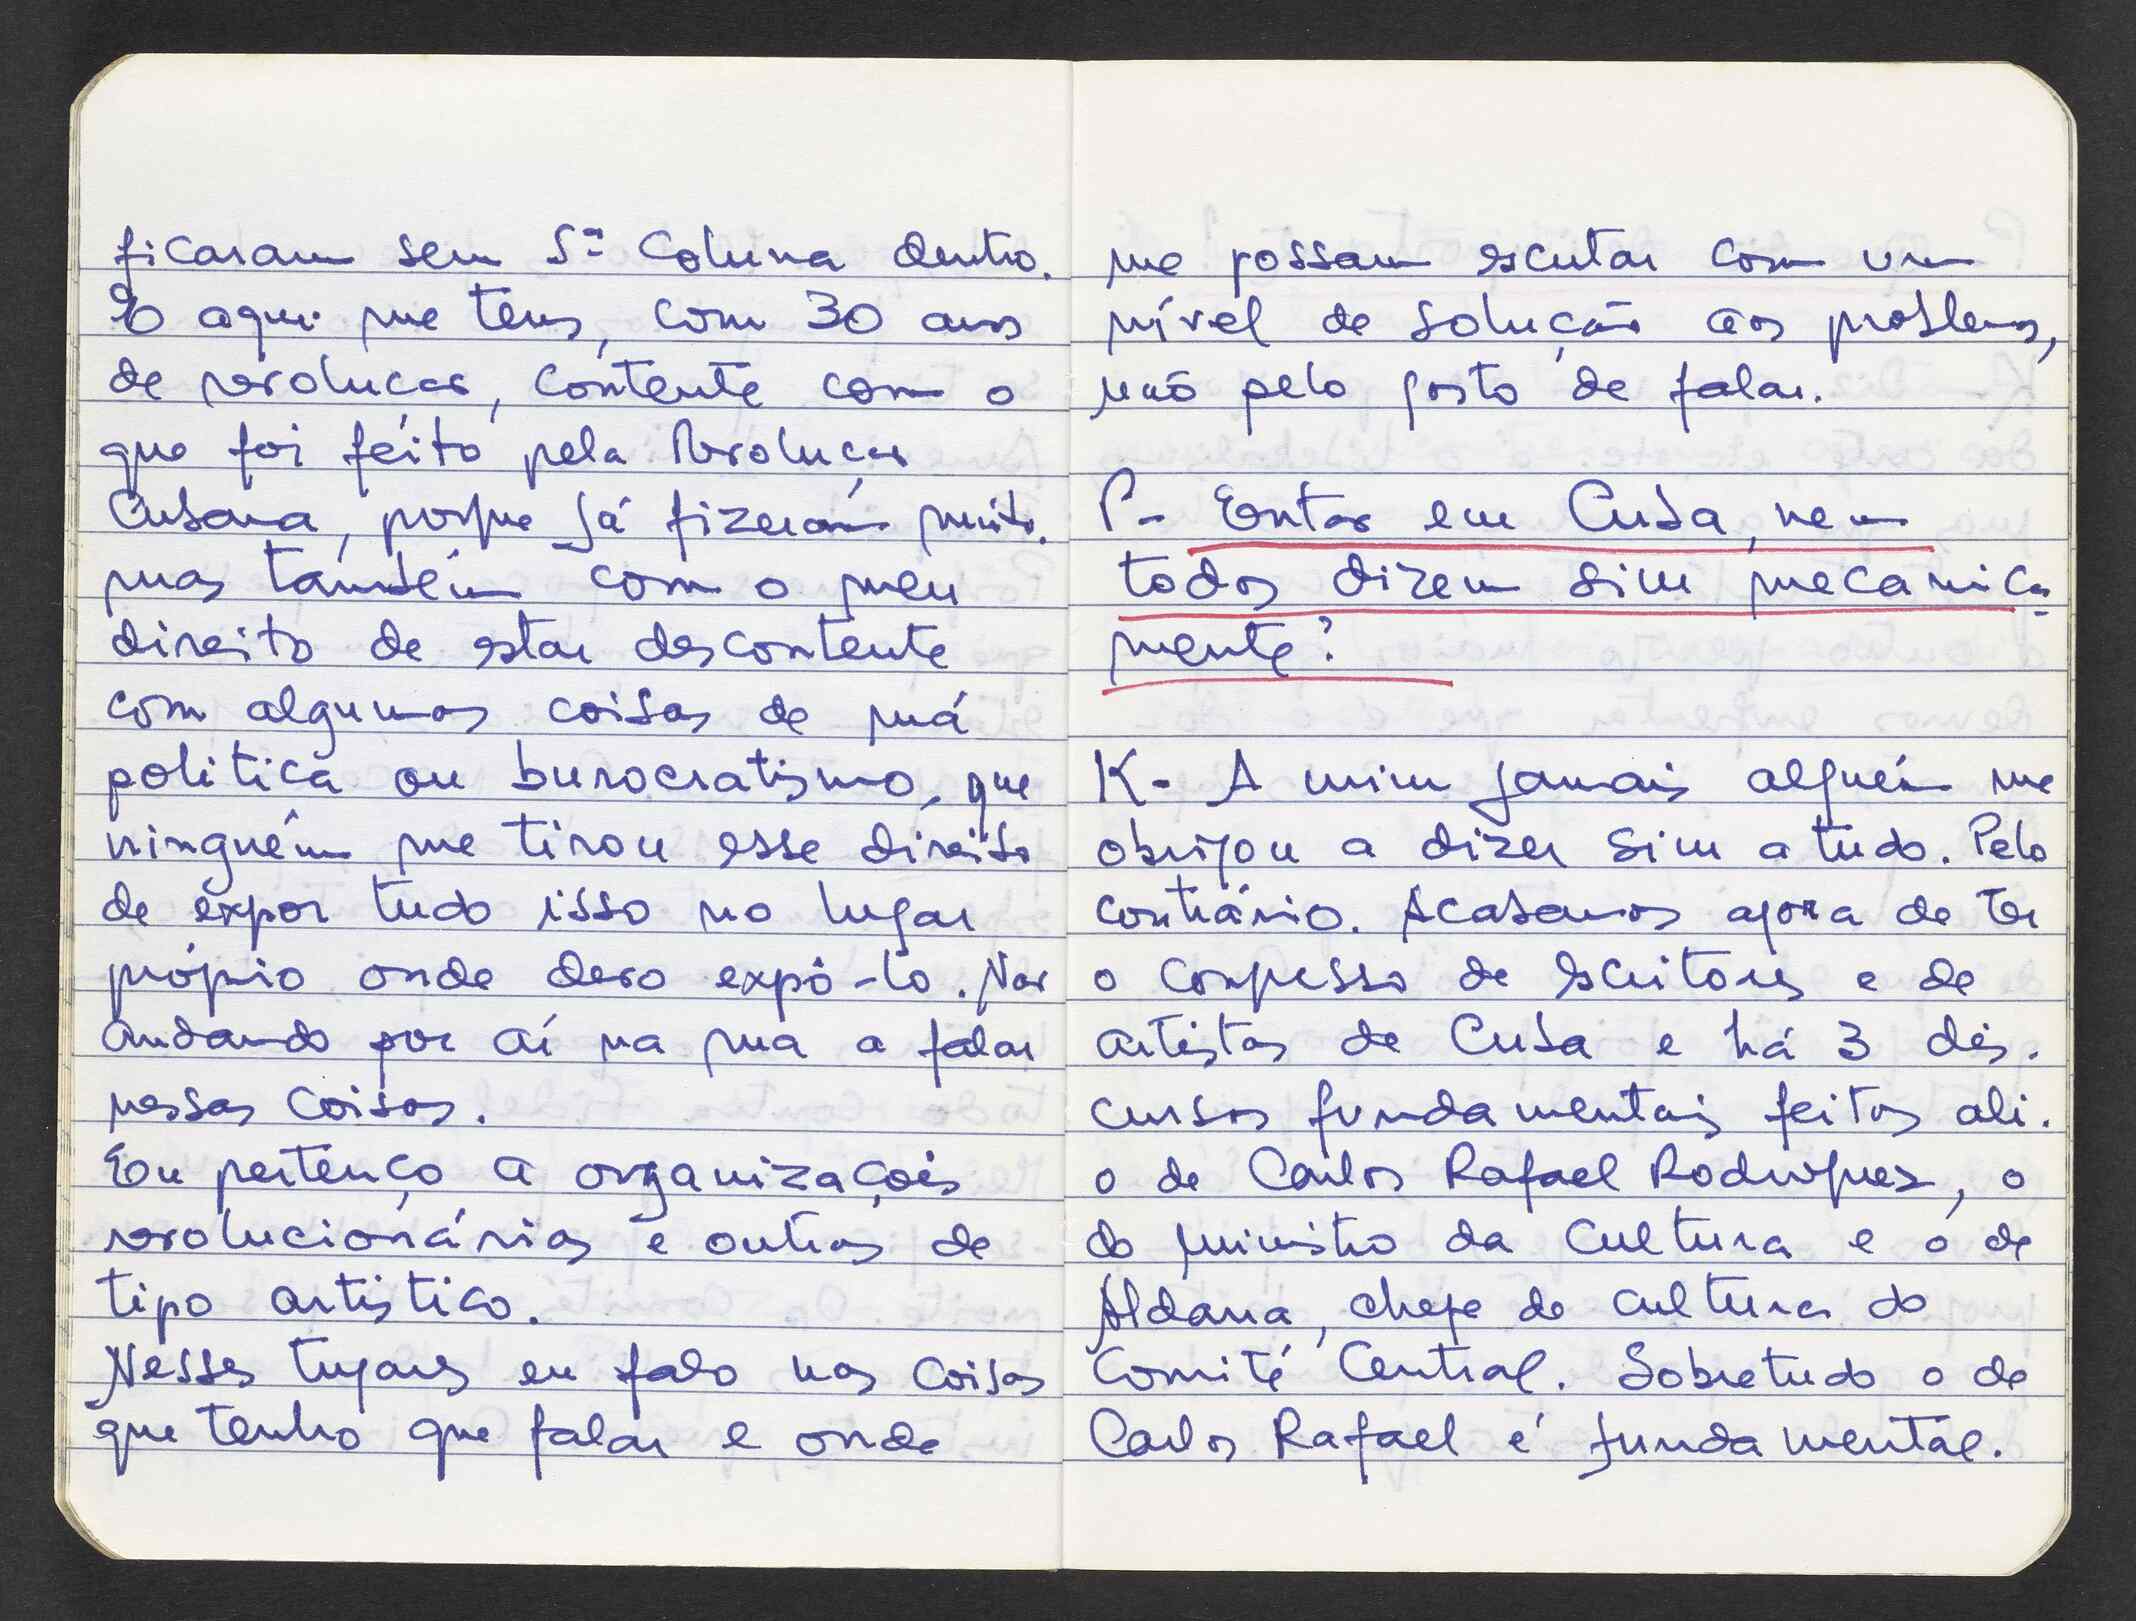 ficaram sem 5ª Coluna dentro.
E aqui me tens, com 30 anos
de revolucão, contente com o
que foi feito pela Revolução
Cubana, porque já fizeram muito.
mas também com o meu
direito de estar descontente
com algumas coisas de má
politica ou burocratismo, que
ninguém me tirou esse direito
de expor tudo isso no lugar
próprio onde devo expô-lo. Não
andando por aí na rua a falar
nessas coisas.
Eu pertenço a organizações
revolucionárias e outras de
tipo artistico.
Nesses lugares eu falo nas coisas
que tenho que falar e onde
me possam escutar com um
nível de solução aos problemas,
não pelo gosto de falar.
P- Então em Cuba, nem
todos dizem sim mecanica-
mente?
K- A mim jamais alguém me
obrigou a dizer sim a tudo. Pelo
contrário. Acabamos agora de ter
o congresso de escritores e de
artistas de Cuba e há 3 dis-
cursos fundamentais feitos ali.
o de Carlos Rafael Rodriguez, o
do ministro da cultura e o de
Aldana, chefe de cultura do
Comité Central. Sobretudo o de
Carlos Rafael é fundamental.